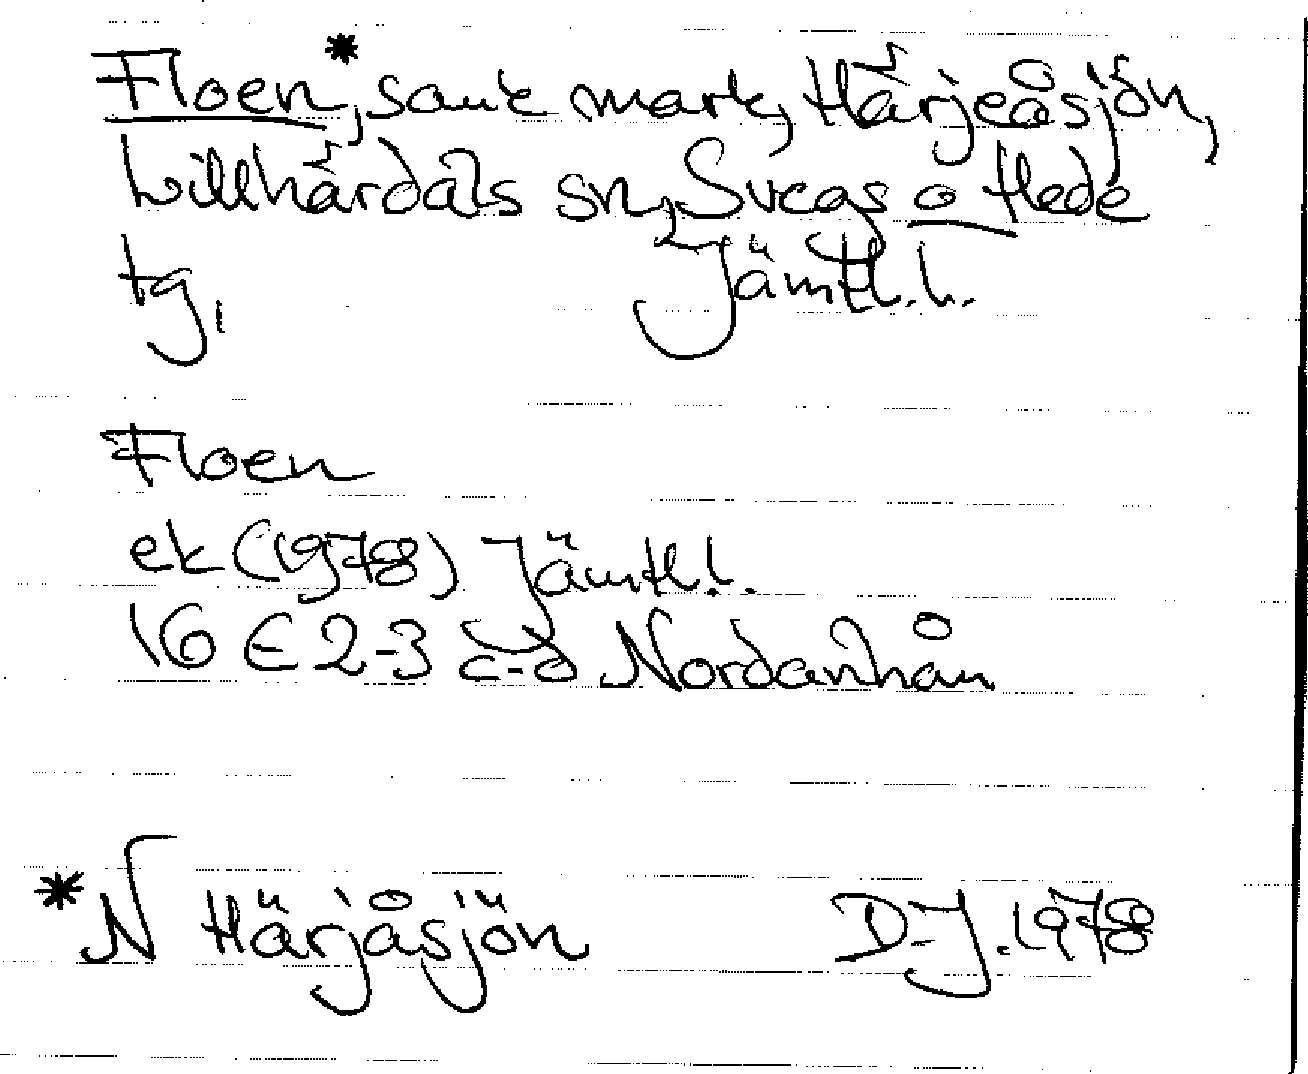 Floen*, sank mark, Härjeåsjön,
Lillhärdals sn, Svegs o Hede
tg, Jämtl.l.
Floen
ek (1978) Jämtl.l.
16 E 2-3 c-d Nordanhån
*N Härjåsjön D-J. 1978